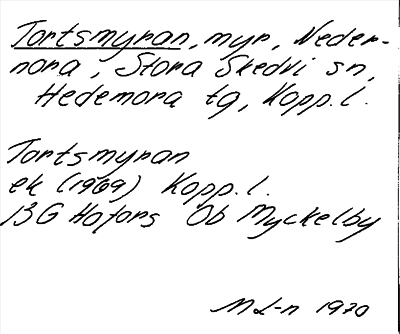 Tortsmyran, myr, Neder-
nora, Stora Skedvi sn,
Hedemora tg, Kopp. l.
Tortsmyran
ek (1969) Kopp. l.
13G Hofors Ob Myckelby
M L-n 1970